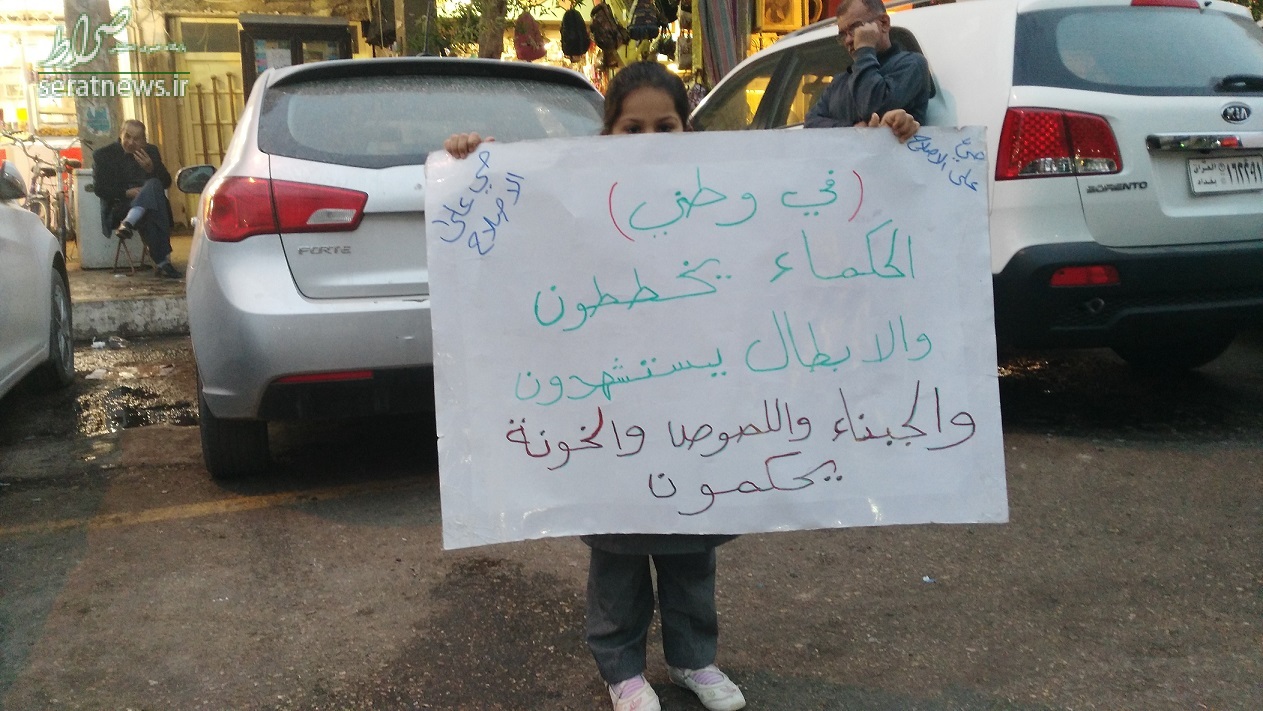 صراط
seratnews.ir
حي على
الاصلاح
حيّ
على الاصلاح
(في وطني)
الحكماء يخططون
والابطال يستشهدون
والجبناء واللصوص والخونة
يحكمون
FORTE
KIA
SORENTO
العراق
بغداد